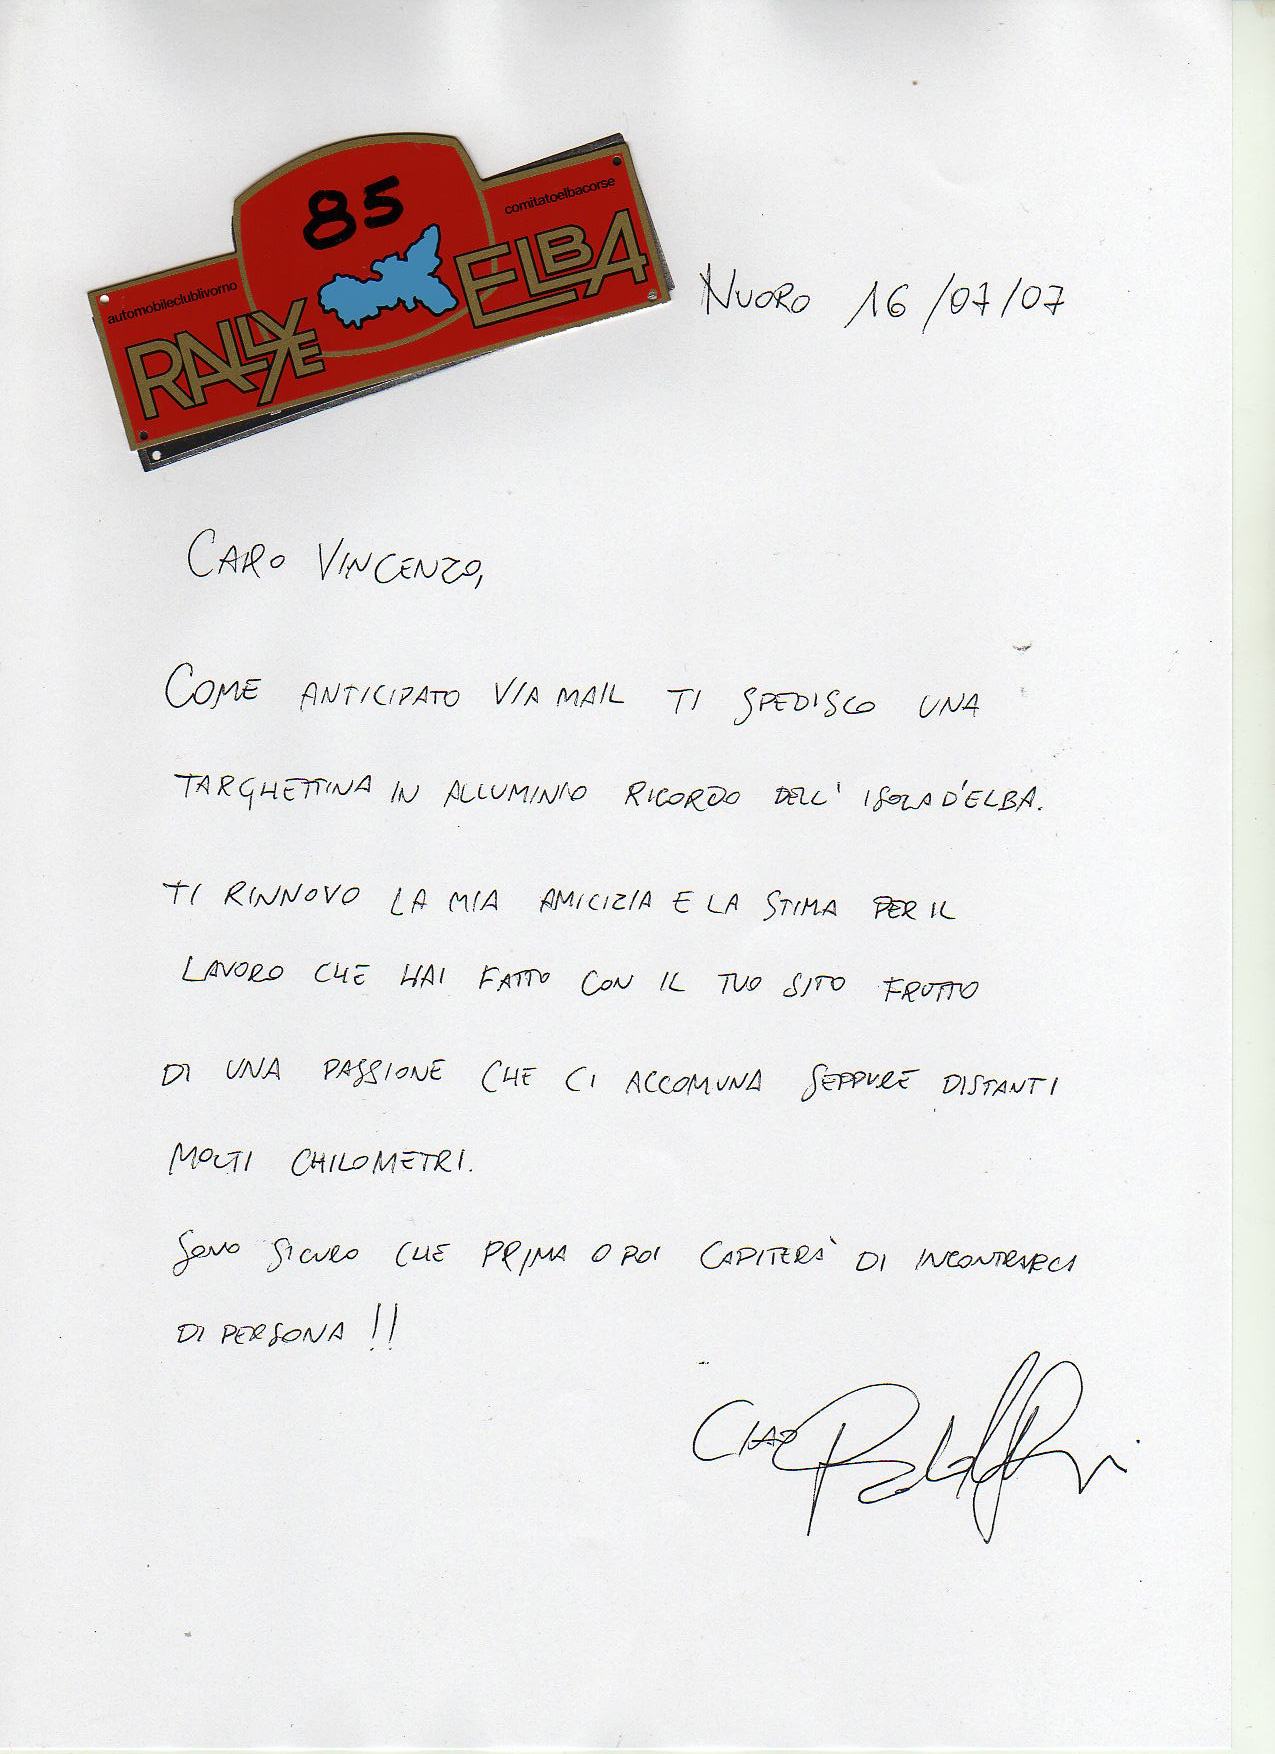 85
comitatoelbacorse
automobileclublivorno
RALLYE ELBA
NUORO 16/07/07
CARO VINCENZO,
COME ANTICIPATO VIA MAIL TI SPEDISCO UNA
TARGHETTINA IN ALLUMINIO RICORDO DELL' ISOLA D'ELBA.
TI RINNOVO LA MIA AMICIZIA E LA STIMA PER IL
LAVORO CHE HAI FATTO CON IL TUO SITO FRUTTO
DI UNA PASSIONE CHE CI ACCOMUNA SEPPURE DISTANTI
MOLTI CHILOMETRI.
SONO SICURO CHE PRIMA O POI CAPITERÀ DI INCONTRARCI
DI PERSONA !!
CIAO